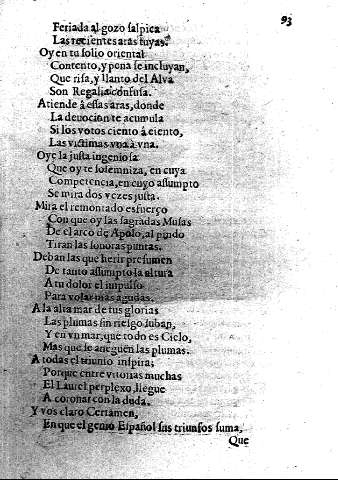 93
Feriada al gozo salpica
Las recientes aras tuyas.
Oy en tu solio oriental
Contento, y pena se incluyan,
Que risa, y llanto del Alva
Son Regalia confusa.
Atiende à essas aras, donde
La deuocion te acumula
Si los votos ciento à ciento,
Las victimas vna à vna.
Oye la justa ingeniosa
Que oy te solemniza, en cuya
Competencia, en cuyo assumpto
Se mira dos vezes justa.
Mira el remontado esfuerço
Con que oy las sagradas Musas
De el arco de Apolo, al pindo
Tiran las sonoras puntas.
Deban las que herir presumen
De tanto assumpto la altura
A tu dolor el impulso
Para volar mas agudas.
A la alta mar de tus glorias
Las plumas sin riesgo suban,
Y en vn mar, que todo es Cielo,
Mas que se aneguen las plumas.
A todas el triunfo inspira;
Porque entre vitorias muchas
El Laurel perplexo, llegue
A coronar con la duda.
Y vos claro Certamen,
En que el genio Español sus triunfos suma,
Que